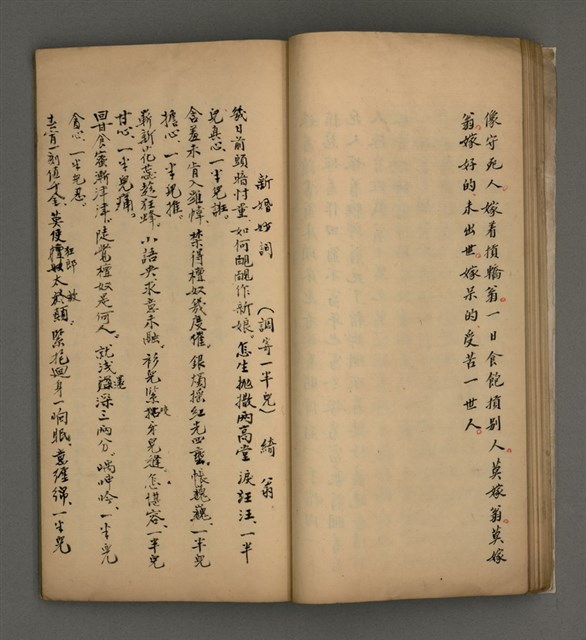 像守死人。嫁着損輸翁。一日食飽損别人。莫嫁翁。莫嫁
翁。嫁好的未出世。嫁呆的受苦一世人。
新婚妙詞 (調寄一半兒) 綺翁
幾日前頭暗忖量。如何靦靦作新娘。怎生拋撇兩高堂。淚汪汪、一半
兒真心、一半兒誑。
含羞未肯入羅幃。禁得檀奴幾度催。銀燭搖紅光四壁。恨巍巍、一半兒
擔心、一半兒推
嶄新花蕊敎狂蜂。小語央求意未融。衫兒緊 牙兒縫。怎堪容、一半兒
甘心、一半兒痛。
回甘食蜜漸津津。陡覺檀奴是何人。就浅還深三兩分。喘呻吟、一半兒
貪心、一半兒忍。
一刻值千金。莫使狂郎太 顛。緊抱迴身一晌眠。意纏綿、一半兒